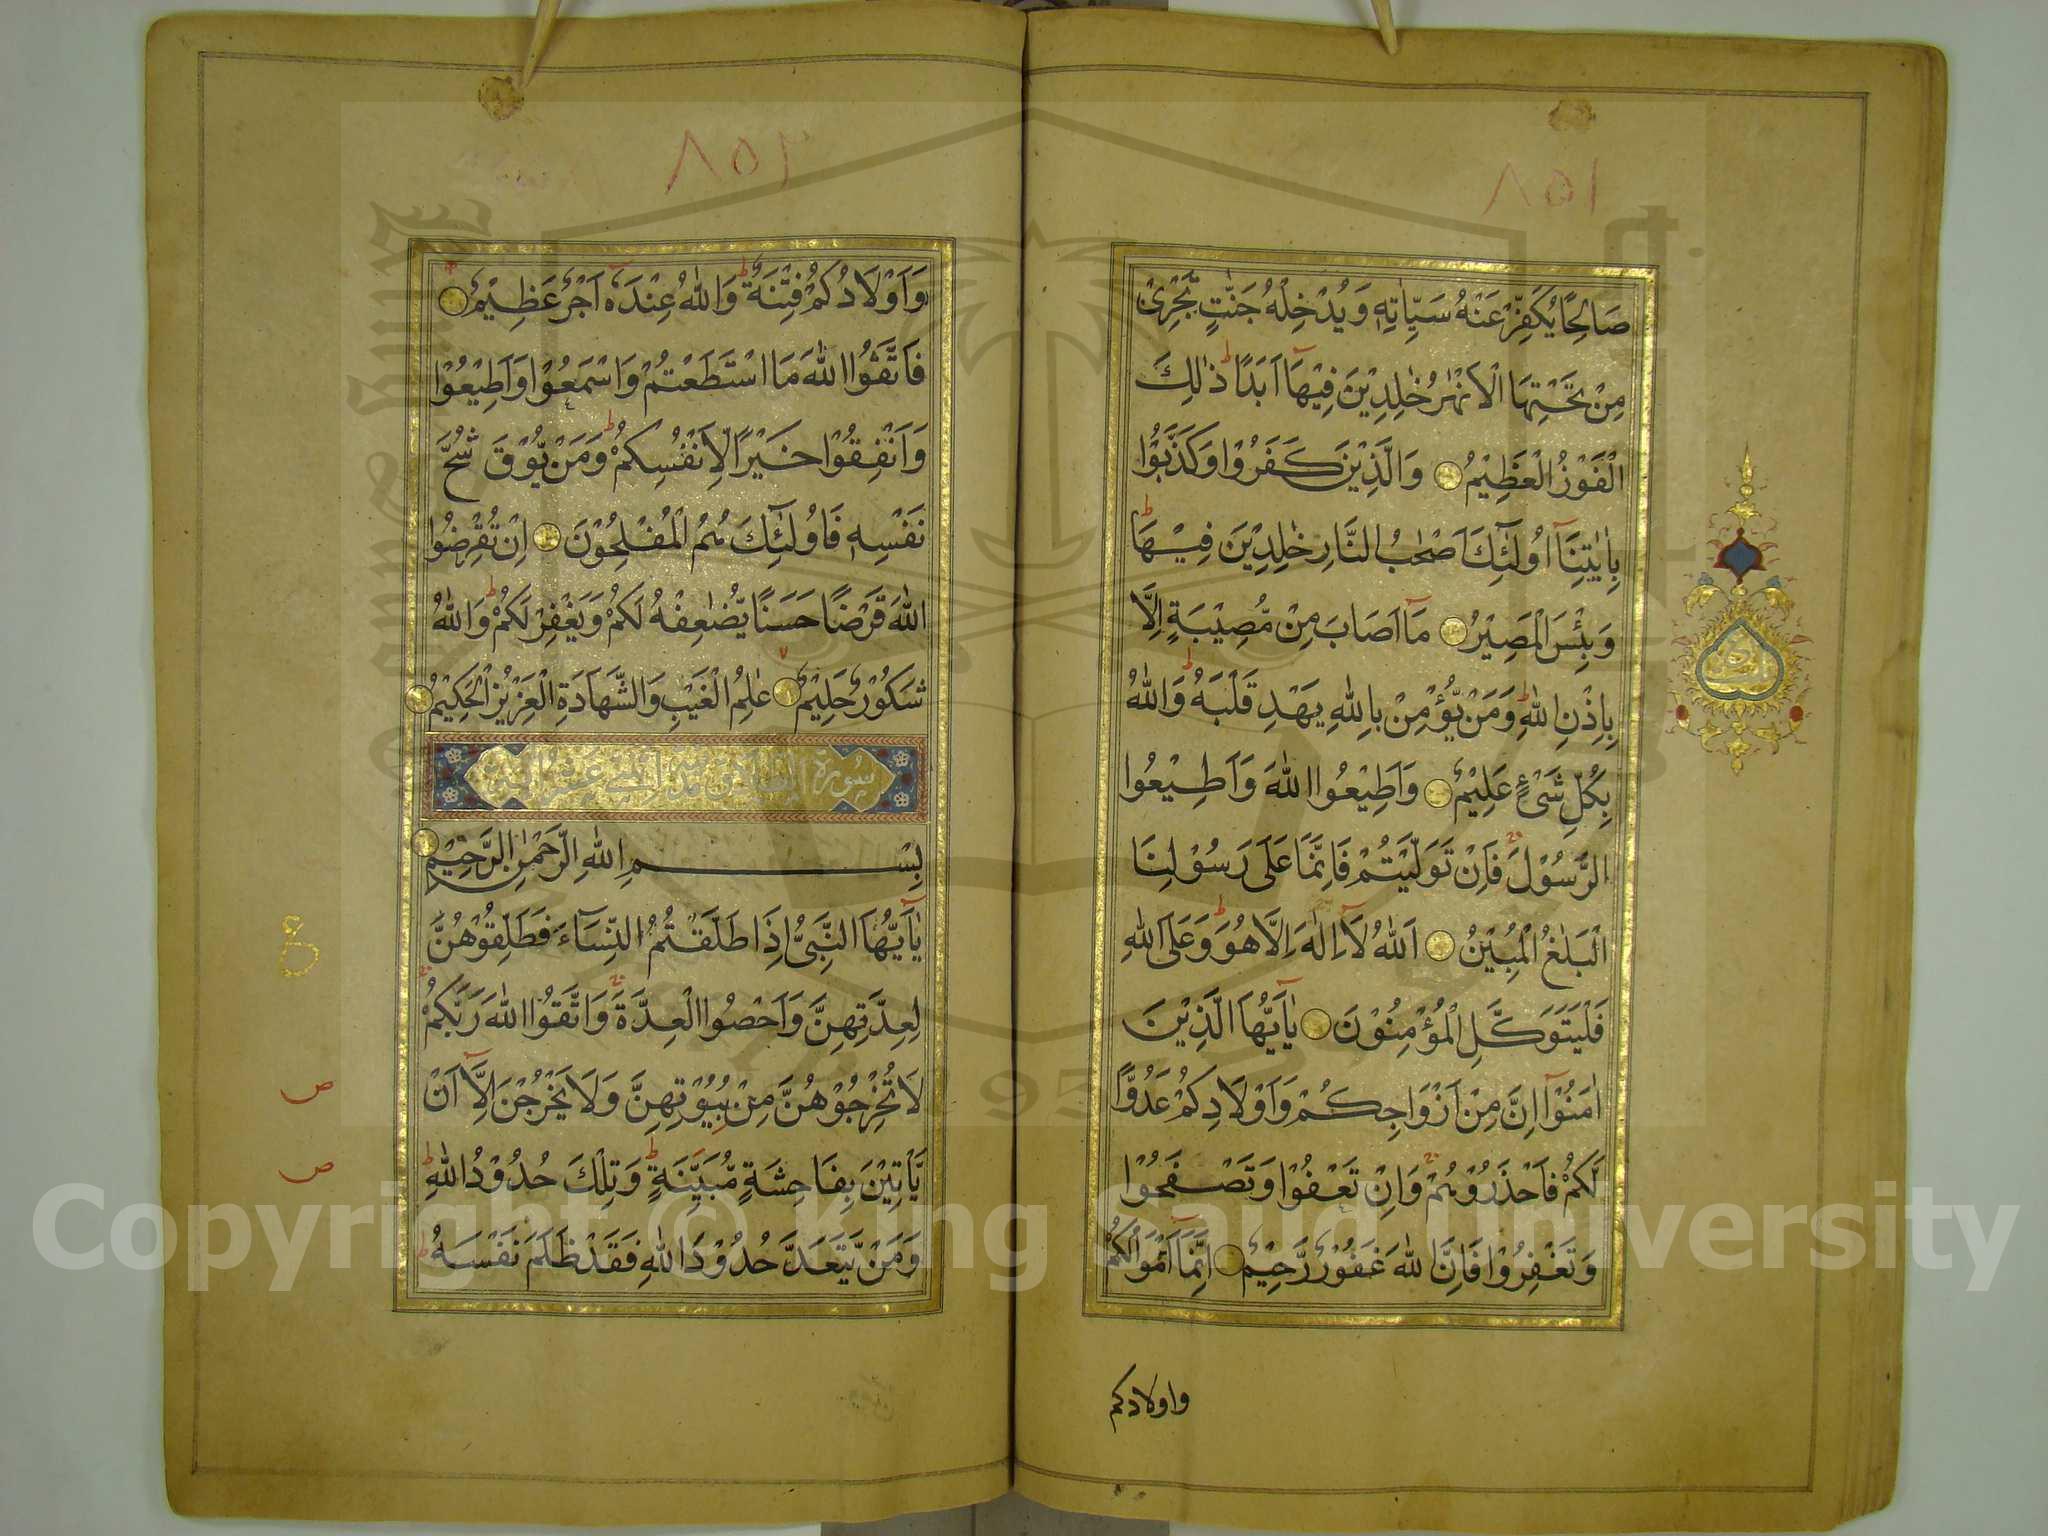 ٨٥١
صَالِحًا يُكَفِّرْ عَنْهُ سَيِّاٰتِهٖ وَيُدْخِلْهُ جَنّٰتٍ تَجْرِىْ
مِنْ تَحْتِهَا الْاَنْهٰرُ خٰلِدِيْنَ فِيْهَآ اَبَدًا ؕ ذٰلِكَ
الْفَوْزُ الْعَظِيْمُ وَالَّذِيْنَ كَفَرُوْا وَكَذَّبُوْا
بِاٰيٰتِنَآ اُولٰٓئِكَ اَصْحٰبُ النَّارِ خٰلِدِيْنَ فِيْهَا ؕ
وَبِئْسَ الْمَصِيْرُ مَآ اَصَابَ مِنْ مُّصِيْبَةٍ اِلَّا
بِاِذْنِ اللّٰهِ ؕ وَمَنْ يُّؤْمِنْ بِاللّٰهِ يَهْدِ قَلْبَهٗ ؕ وَاللّٰهُ
بِكُلِّ شَىْءٍ عَلِيْمٌ وَاَطِيْعُوا اللّٰهَ وَاَطِيْعُوا
الرَّسُوْلَ ۚ فَاِنْ تَوَلَّيْتُمْ فَاِنَّمَا عَلٰى رَسُوْلِنَا
الْبَلٰغُ الْمُبِيْنُ اَللّٰهُ لَآ اِلٰهَ اِلَّا هُوَ ؕ وَعَلَى اللّٰهِ
فَلْيَتَوَكَّلِ الْمُؤْمِنُوْنَ يٰٓاَيُّهَا الَّذِيْنَ
اٰمَنُوْٓا اِنَّ مِنْ اَزْوَاجِكُمْ وَاَوْلَادِكُمْ عَدُوًّا
لَّكُمْ فَاحْذَرُوْهُمْ ۚ وَاِنْ تَعْفُوْا وَتَصْفَحُوْا
وَتَغْفِرُوْا فَاِنَّ اللّٰهَ غَفُوْرٌ رَّحِيْمٌ اِنَّمَآ اَمْوَالُكُمْ
واولادكم
٨٥٢
وَاَوْلَادُكُمْ فِتْنَةٌ ؕ وَاللّٰهُ عِنْدَهٗٓ اَجْرٌ عَظِيْمٌ
فَاتَّقُوا اللّٰهَ مَا اسْتَطَعْتُمْ وَاسْمَعُوْا وَاَطِيْعُوْا
وَاَنْفِقُوْا خَيْرًا لِّاَنْفُسِكُمْ ؕ وَمَنْ يُّوْقَ شُحَّ
نَفْسِهٖ فَاُولٰٓئِكَ هُمُ الْمُفْلِحُوْنَ اِنْ تُقْرِضُوا
اللّٰهَ قَرْضًا حَسَنًا يُّضٰعِفْهُ لَكُمْ وَيَغْفِرْ لَكُمْ ؕ وَاللّٰهُ
شَكُوْرٌ حَلِيْمٌ عٰلِمُ الْغَيْبِ وَالشَّهَادَةِ الْعَزِيْزُ الْحَكِيْمُ
سورة الطلاق
بِسْمِ اللّٰهِ الرَّحْمٰنِ الرَّحِيْمِ
يٰٓاَيُّهَا النَّبِىُّ اِذَا طَلَّقْتُمُ النِّسَآءَ فَطَلِّقُوْهُنَّ
لِعِدَّتِهِنَّ وَاَحْصُوا الْعِدَّةَ ۚ وَاتَّقُوا اللّٰهَ رَبَّكُمْ ۚ
لَا تُخْرِجُوْهُنَّ مِنْ بُيُوْتِهِنَّ وَلَا يَخْرُجْنَ اِلَّآ اَنْ
يَّاْتِيْنَ بِفَاحِشَةٍ مُّبَيِّنَةٍ ؕ وَتِلْكَ حُدُوْدُ اللّٰهِ ؕ
وَمَنْ يَّتَعَدَّ حُدُوْدَ اللّٰهِ فَقَدْ ظَلَمَ نَفْسَهٗ ؕ
ع
ص
ص
Copyright © King Saud University